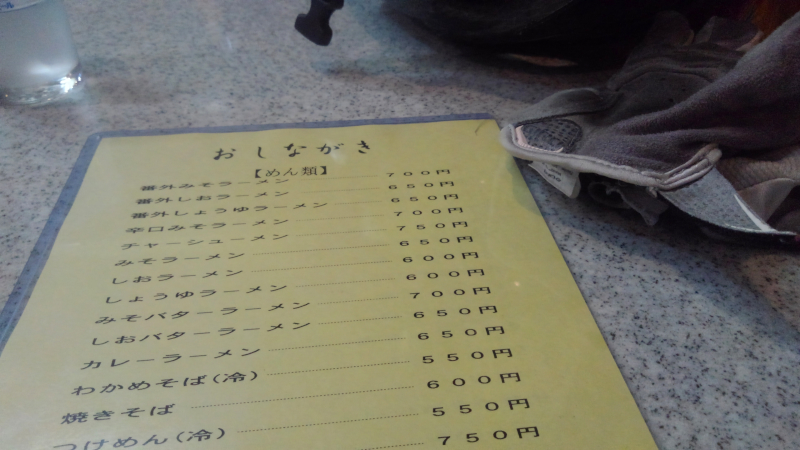 おしながき
【めん類】
番外みそラーメン 700円
番外しおラーメン 650円
番外しょうゆラーメン 650円
辛口みそラーメン 700円
チャーシューメン 750円
みそラーメン 650円
しおラーメン 600円
しょうゆラーメン 600円
みそバターラーメン 700円
しおバターラーメン 650円
カレーラーメン 650円
わかめそば(冷) 550円
焼きそば 600円
つけめん(冷) 550円
750円